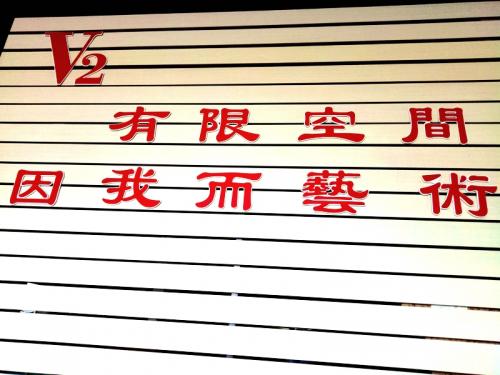 V2
有限空間
因我而藝術